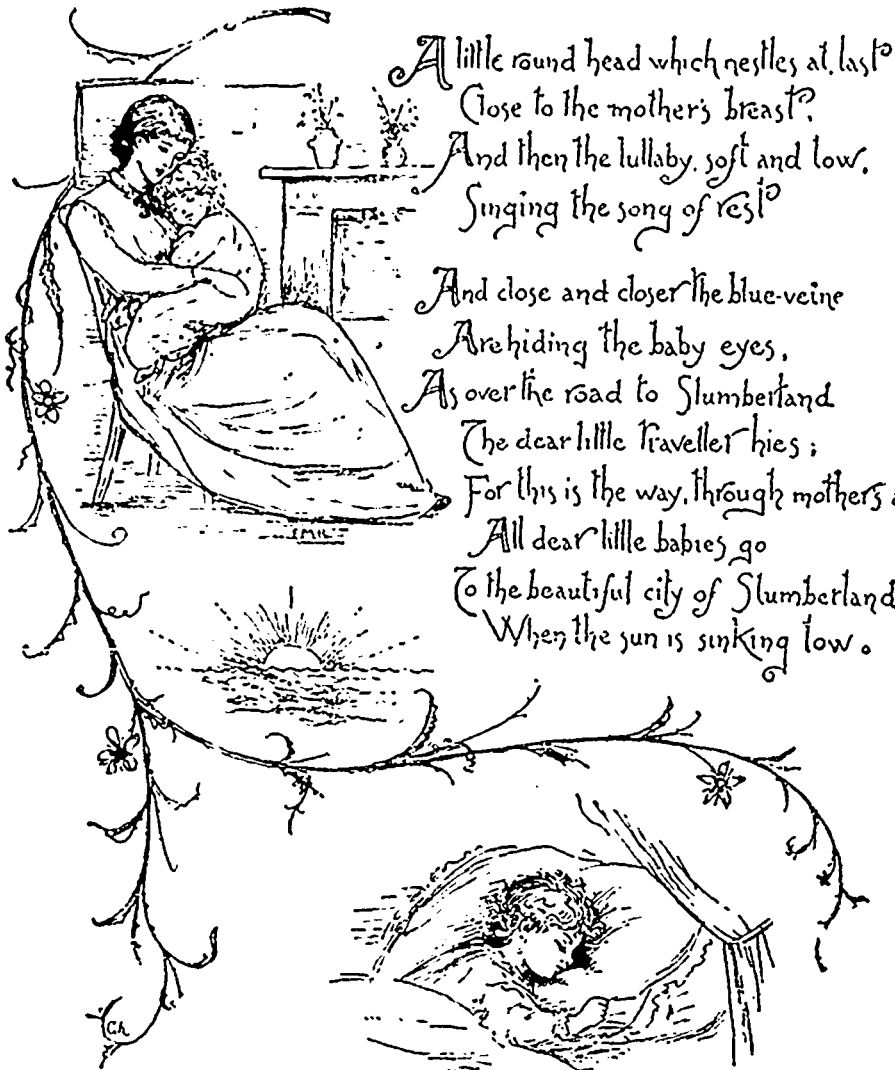 A little round head which nestles at last
Close to the mother's breast,
And then the lullaby, soft and low,
Singing the song of rest
And close and closer the blue-veine
Are hiding the baby eyes,
As over the road to Slumberland
The dear little traveller hies;
For this is the way, through mother's a
All dear little babies go
To the beautiful city of Slumberland
When the sun is sinking low.